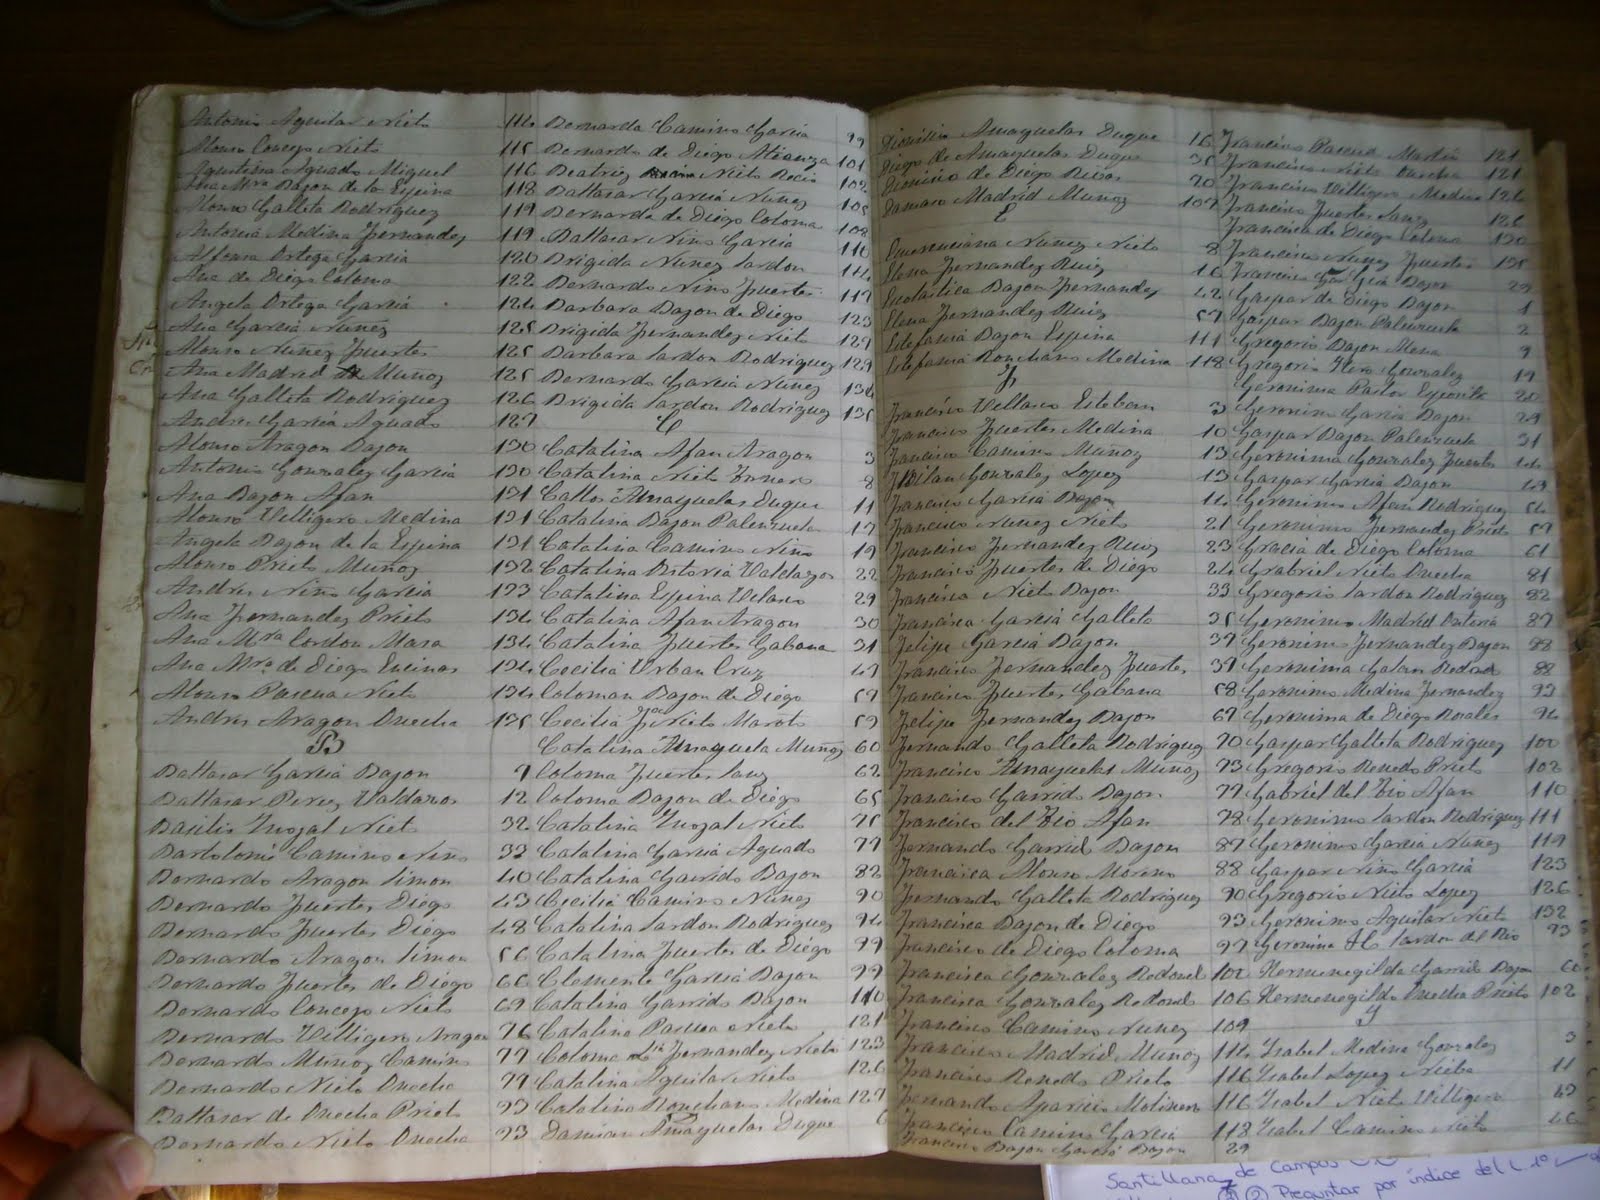 Antonio Aguilar Nieto 114
Alonso Concejo Nieto 115
Agustina Aguado Miguel 116
Ana Mra Bajon de la Espina 118
Alonso Galleta Rodriguez 119
Antonia Medina Fernandez 119
Alfonsa Ortega Garcia 120
Ana de Diego Coloma 122
Angela Ortega Garcia 124
Ana Garcia Nuñez 125
Alonso Nuñez Fuertes 125
Ana Madrid Muñoz 125
Ana Galleta Rodriguez 126
Andres Garcia Aguado 127
Alonso Aragon Bajon 130
Antonio Gonzalez Garcia 130
Ana Bajon Afan 131
Alonso Villigero Medina 131
Angela Bajon de la Espina 131
Alonso Prieto Muñoz 132
Andres Niño Garcia 133
Ana Fernandez Prieto 134
Ana Mra Cordon Masa 134
Ana Mra de Diego Encinas 134
Alonso Pascua Nieto 134
Andres Aragon Onecha 135
B
Baltasar Garcia Bajon 7
Baltasar Perez Valdazos 12
Basilio Inojal Nieto 32
Bartolomé Camino Niño 33
Bernardo Aragon Simon 40
Bernardo Fuertes Diego 43
Bernardo Fuertes Diego 48
Bernardo Aragon Simon 56
Bernardo Fuertes de Diego 66
Bernardo Concejo Nieto 69
Bernardo Villigero Aragon 76
Bernardo Muñoz Camino 77
Bernardo Nieto Onecha 77
Baltasar de Onecha Prieto 93
Bernardo Nieto Onecha 93
Bernarda Camino Garcia 99
Bernarda de Diego Atienza 101
Beatriz Nieto Recio 102
Baltasar Garcia Nuñez 105
Bernarda de Diego Coloma 108
Baltasar Niño Garcia 110
Brigida Nunez Sardon 114
Bernardo Nino Fuertes 117
Barbara Bajon de Diego 123
Brigida Fernandez Nieto 129
Barbara Sardon Rodriguez 129
Bernardo Garcia Nunez 134
Brigida Sardon Rodriguez 135
C
Catalina Afan Aragon 3
Catalina Nieto 8
Carlos Amayuelas Duque 11
Catalina Bajon Palenzuela 17
Catalina Camino Niño 19
Catalina Astoria Valdazos 22
Catalina Espina Velasco 29
Catalina Afan Aragon 30
Catalina Fuertes Gabana 31
Cecilia Urban Cruz 47
Coloman Bajon de Diego 57
Cecilia Nieto Maroto 59
Catalina Amayuela Muñoz 60
Coloma Fuertes Sanz 62
Coloma Bajon de Diego 65
Catalina Inojal Nieto 75
Catalina Garcia Aguado 77
Catalina Garrido Bajon 82
Cecilia Camino Nuñez 90
Catalina Sardon Rodriguez 94
Catalina Fuertes de Diego 99
Clemente Garcia Bajon 99
Catalina Garrido Bajon 110
Catalina Pascua Nieto 121
Coloma Fernandez Nieto 123
Catalina Aguilar Nieto 126
Catalina Ronchano Medina 127
Damian Amayuelas Duque 6
Dionisia Amayuelas Duque 16
Diego de Amayuelas Duque 35
Dionisio de Diego 70
Damaso Madrid Muñoz 107
E
Emerenciana Nuñez Nieto 8
Elena Fernandez Ruiz 16
Escolastica Bajon Fernandez 42
Elena Fernandez Ruiz 57
Estefania Bajon Espina 111
Estefania Ronchano Medina 118
F
Francisco Vellasco Esteban 3
Francisco Fuertes Medina 10
Francisco Camino Muñoz 13
Gonzalez Lopez 13
Francisco Garcia Bajon 14
Francisco Nunez Nieto 21
Francisco Fernandez Ruiz 23
Francisco Fuertes de Diego 24
Francisco Nieto Bajon 33
Francisca Garcia Galleta 35
Felipe Garcia Bajon 37
Francisco Fernandez Fuertes 37
Francisco Fuertes Gabana 58
Felipe Fernandez Bajon 67
Fernando Galleta Rodriguez 70
Francisco Amayuelas Muñoz 73
Francisco Garrido Bajon 77
Francisco del Rio Afan 78
Fernando Garrido Bajon 87
Francisca Alonso Moreno 88
Fernando Galleta Rodriguez 90
Francisca Bajon de Diego 93
Francisco de Diego Coloma 97
Francisca Gonzalez Redondo 100
Francisca Gonzalez Redondo 106
Francisco Camino Nunez 109
Francisco Madrid Muñoz 114
Francisco Renedo Prieto 116
Fernando Aparicio Molinero 116
Francisco Camino Garcia 118
Francisco Bajon Garcia Bajon 29
Francisco Pascua Martin 121
Francisco Nieto Onecha 121
Francisco Villigero Medina 126
Francisco Fuertes Sanz 126
Francisca de Diego Coloma 130
Francisco Nunez Fuertes 135
Francisco Gcia Bajon 29
Gaspar de Diego Bajon 1
Gaspar Bajon Palenzuela 2
Gregorio Bajon Mena 9
Gregorio Hero Gonzalez 19
Geronima Pastor 20
Geronimo Garcia Bajon 29
Gaspar Bajon Palenzuela 31
Geronima Gonzalez Fuertes 44
Gaspar Garcia Bajon 49
Geronimo Afan Rodriguez 54
Geronimo Fernandez Prieto 57
Gracia de Diego Coloma 61
Grabriel Nieto Onecha 81
Gregorio Sardon Rodriguez 82
Geronimo Madrid Onteria 87
Geronimo Fernandez Bajon 88
Geronima Galan Redondo 88
Geronimo Medina Fernandez 93
Geronima de Diego Rosales 94
Gaspar Galleta Rodriguez 100
Gregorio Renedo Prieto 102
Gabriel del Rio Afan 110
Geronimo Sardon Rodriguez 111
Geronimo Garcia Nuñez 119
Gaspar Niño Garcia 123
Gregorio Nieto Lopez 126
Geronimo Aguilar Nieto 132
Geronima Sardon del Rio 73
Hermenegilda Garrido Bajon 60
Hermenegildo Onecha Prieto 102
I
Isabel Medina Gonzalez 3
Isabel Lopez Nieto 11
Isabel Nieto Villigero 43
Isabel Camino Nieto 46
Santillana de Campos
② Preguntar por índice del L 1º